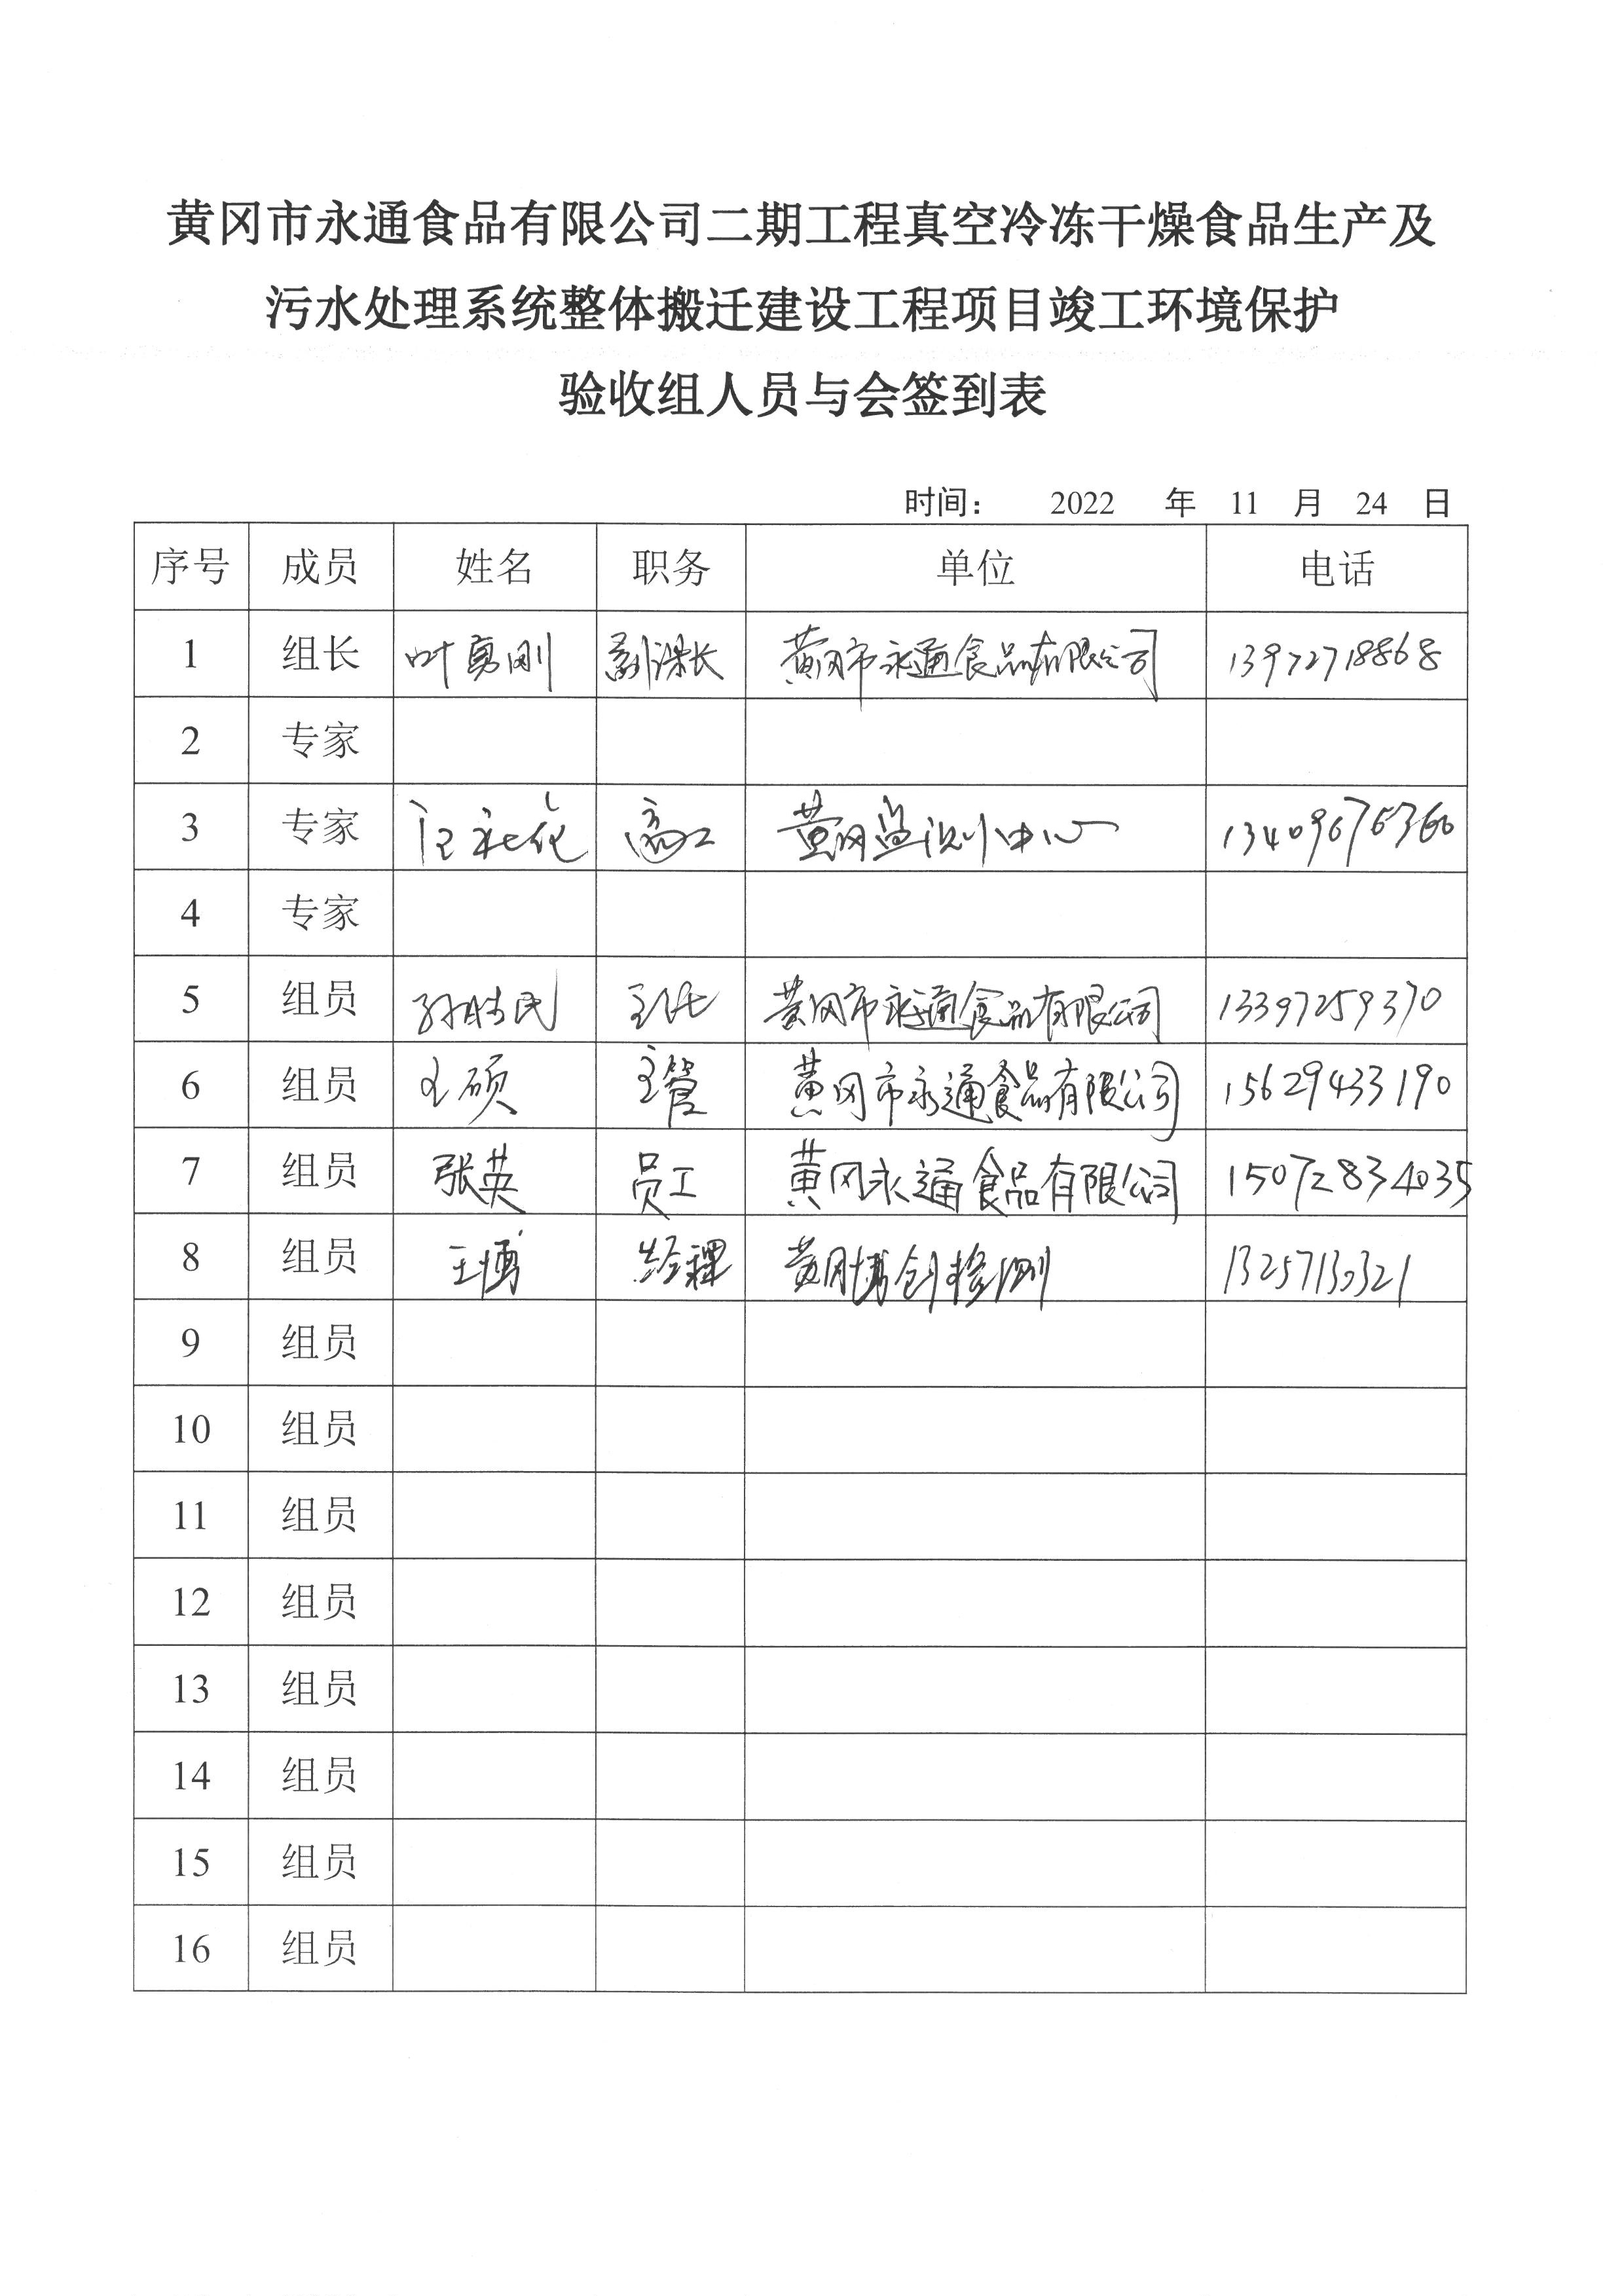 黄冈市永通食品有限公司二期工程真空冷冻干燥食品生产及
污水处理系统整体搬迁建设工程项目竣工环境保护
验收组人员与会签到表
时间： 2022 年 11 月 24 日
序号 成员 姓名 职务 单位 电话
1 组长 叶勇刚 副课长 黄冈市永通食品有限公司 13972718868
2 专家
3 专家 高工 黄冈监测中心 13409676360
4 专家
5 组员 孙胜民 主任 黄冈市永通食品有限公司 13397259370
6 组员 王硕 主管 黄冈市永通食品有限公司 15629433190
7 组员 张英 员工 黄冈永通食品有限公司 15072834035
8 组员 王博 经理 黄冈博创检测 13257130321
9 组员
10 组员
11 组员
12 组员
13 组员
14 组员
15 组员
16 组员